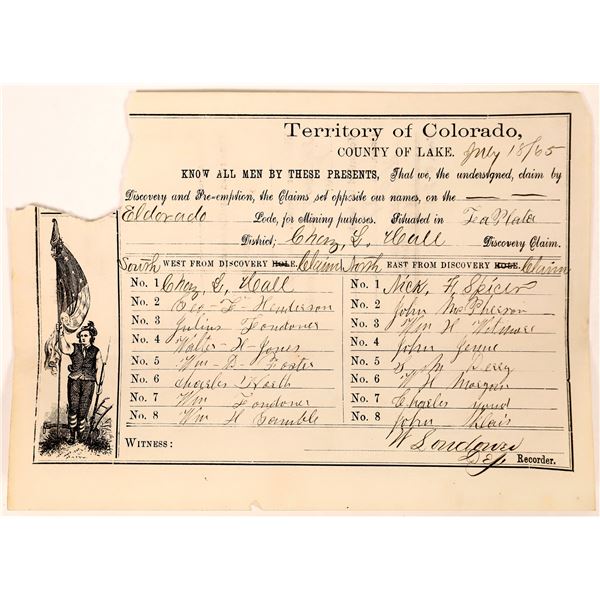 Territory of Colorado,
COUNTY OF LAKE. July 18/65
KNOW ALL MEN BY THESE PRESENTS, That we, the understgned, claim by
Discovery and Pre-emption, the Claims set opposite our names, on the
Eldorado Lode, for Mining purposes. Situated in
District; Chaz, G. Hall Discovery Claim.
South WEST FROM DISCOVERY HOLE. Claim North EAST FROM DISCOVERY HOLE. Claim
No. 1 Chaz, G. Hall No. 1 Nick, H. Spicer
No. 2 Geo - F - Henderson No. 2 John McPherson
No. 3 Julius Londoner No. 3 Wm H
No. 4 Walter - H - Jones No. 4 John
No. 5 Wm - D - Foster No. 5 Percy
No. 6 Charles No. 6 W H Morgan
No. 7 Wm Londoner No. 7 Charles
No. 8 Wm H Gamble No. 8 John
WITNESS: W Londoner
Dep Recorder.